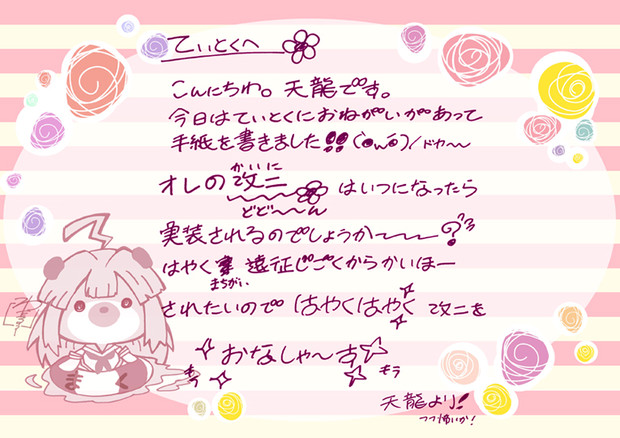 ていとくへ
こんにちわ。天龍です。
今日はていとくにおねがいがあって
手紙を書きました!!(`・ω・´)ノドヤ〜〜
かいに
オレの改二はいつになったら
どど〜〜ん
実装されるのでしょうかー〜〜?
はやく 遠征じごくからかいほー
まちがい
されたいので はやくはやく 改二を
おなしゃ〜す
もう
天龍より!
フフ怖いか!